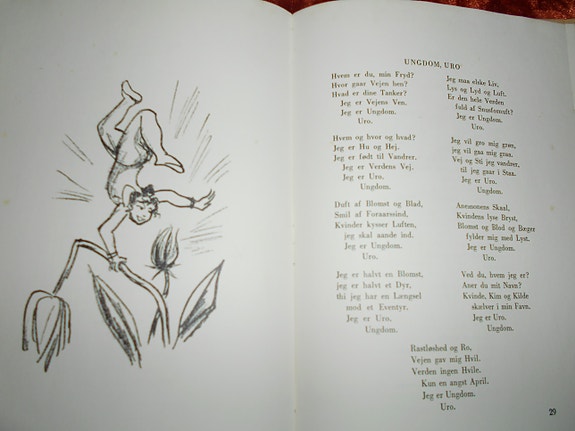 UNGDOM, URO
Hvem er du, min Fryd?
Hvor gaar Vejen hen?
Hvad er dine Tanker?
Jeg er Vejens Ven.
Jeg er Ungdom.
Uro.
Hvem og hvor og hvad?
Jeg er Hu og Hej.
Jeg er født til Vandrer,
Jeg er Verdens Vej.
Jeg er Uro.
Ungdom.
Duft af Blomst og Blad,
Smil af Foraarssind,
Kvinder kysser Luften,
jeg skal aande ind.
Jeg er Ungdom.
Uro.
Jeg er halvt en Blomst,
jeg er halvt et Dyr,
thi jeg har en Længsel
mod et Eventyr.
Jeg er Uro.
Ungdom.
Jeg maa elske Liv,
Lys og Lyd og Luft.
Er den hele Verden
fuld af
Jeg er Ungdom.
Uro.
Jeg vil gro mig grøn,
jeg vil gaa mig graa.
Vej og Sti jeg vandrer,
til jeg gaar i Staa.
Jeg er Uro.
Ungdom.
Anemonens Skaal,
Kvindens lyse Bryst,
Blomst og Blod og Bæger
fylder mig med Lyst.
Jeg er Ungdom.
Uro.
Ved du, hvem jeg er?
Aner du mit Navn?
Kvinde, Kim og Kilde
skælver i min Favn.
Jeg er Uro.
Ungdom.
Rastløshed og Ro.
Vejen gav mig Hvil.
Verden ingen Hvile.
Kun en angst April.
Jeg er Ungdom.
Uro.
29